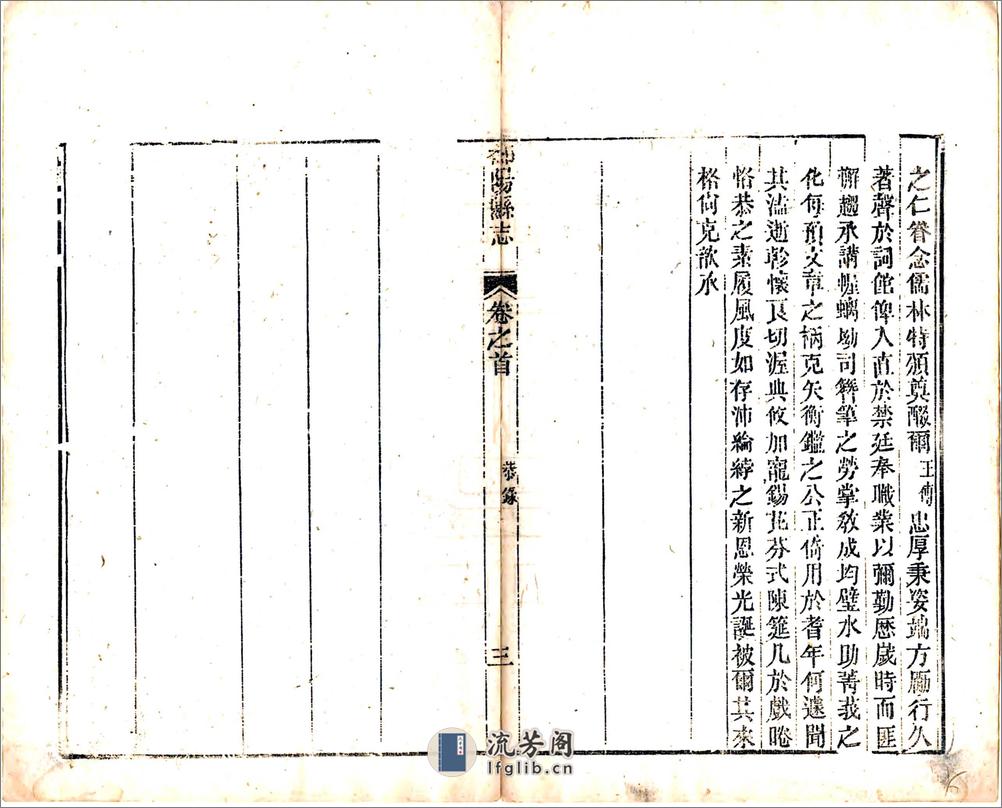 之仁眷念儒林特頒奠醊爾王傳忠厚秉姿端方勵行久
著聲於詞館俾入直於禁廷奉職業以彌勤歷歲時而匪
懈趨承講幄螭坳司簪筆之勞掌教成均璧水助菁莪之
化每預文章之柄克矢衡鑑之公正倚用於耆年何遽聞
其溘逝軫懷良切渥典攸加寵錫苾芬式陳筵几於戲唵
恪恭之素履風度如存沛綸綍之新恩榮光誕被爾其來
格尚克歆承
陽縣志
卷之首
恭錄
三
流芳阁
lfglib.cn